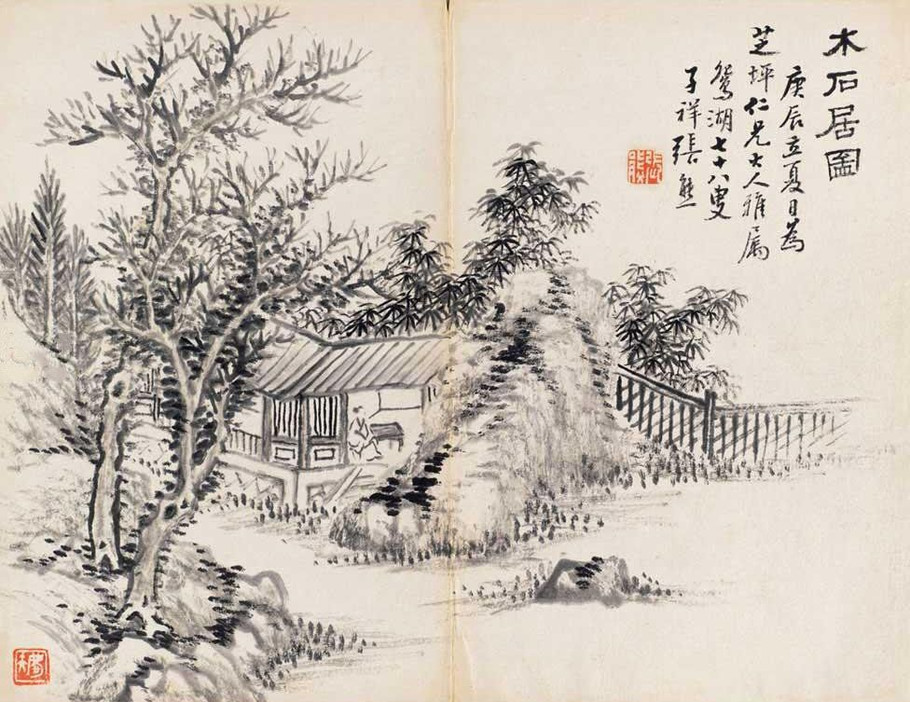 木石居圖
庚辰立夏日為
芝坪仁兄大人雅属
鴛湖七十八叟
子祥張熊
張熊